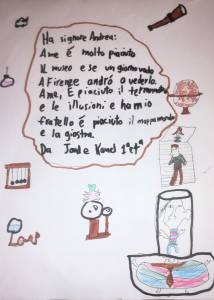 Ha signore Andrea:
Ame è molto piaciuto
il museo e se un giorno vado
A Firenze andró a vederlo.
Ame, È piaciuto il
e le illusioni e ha mio
fratello è piaciuto il mappamondo
e la giostra.
Da Jord e 1ª